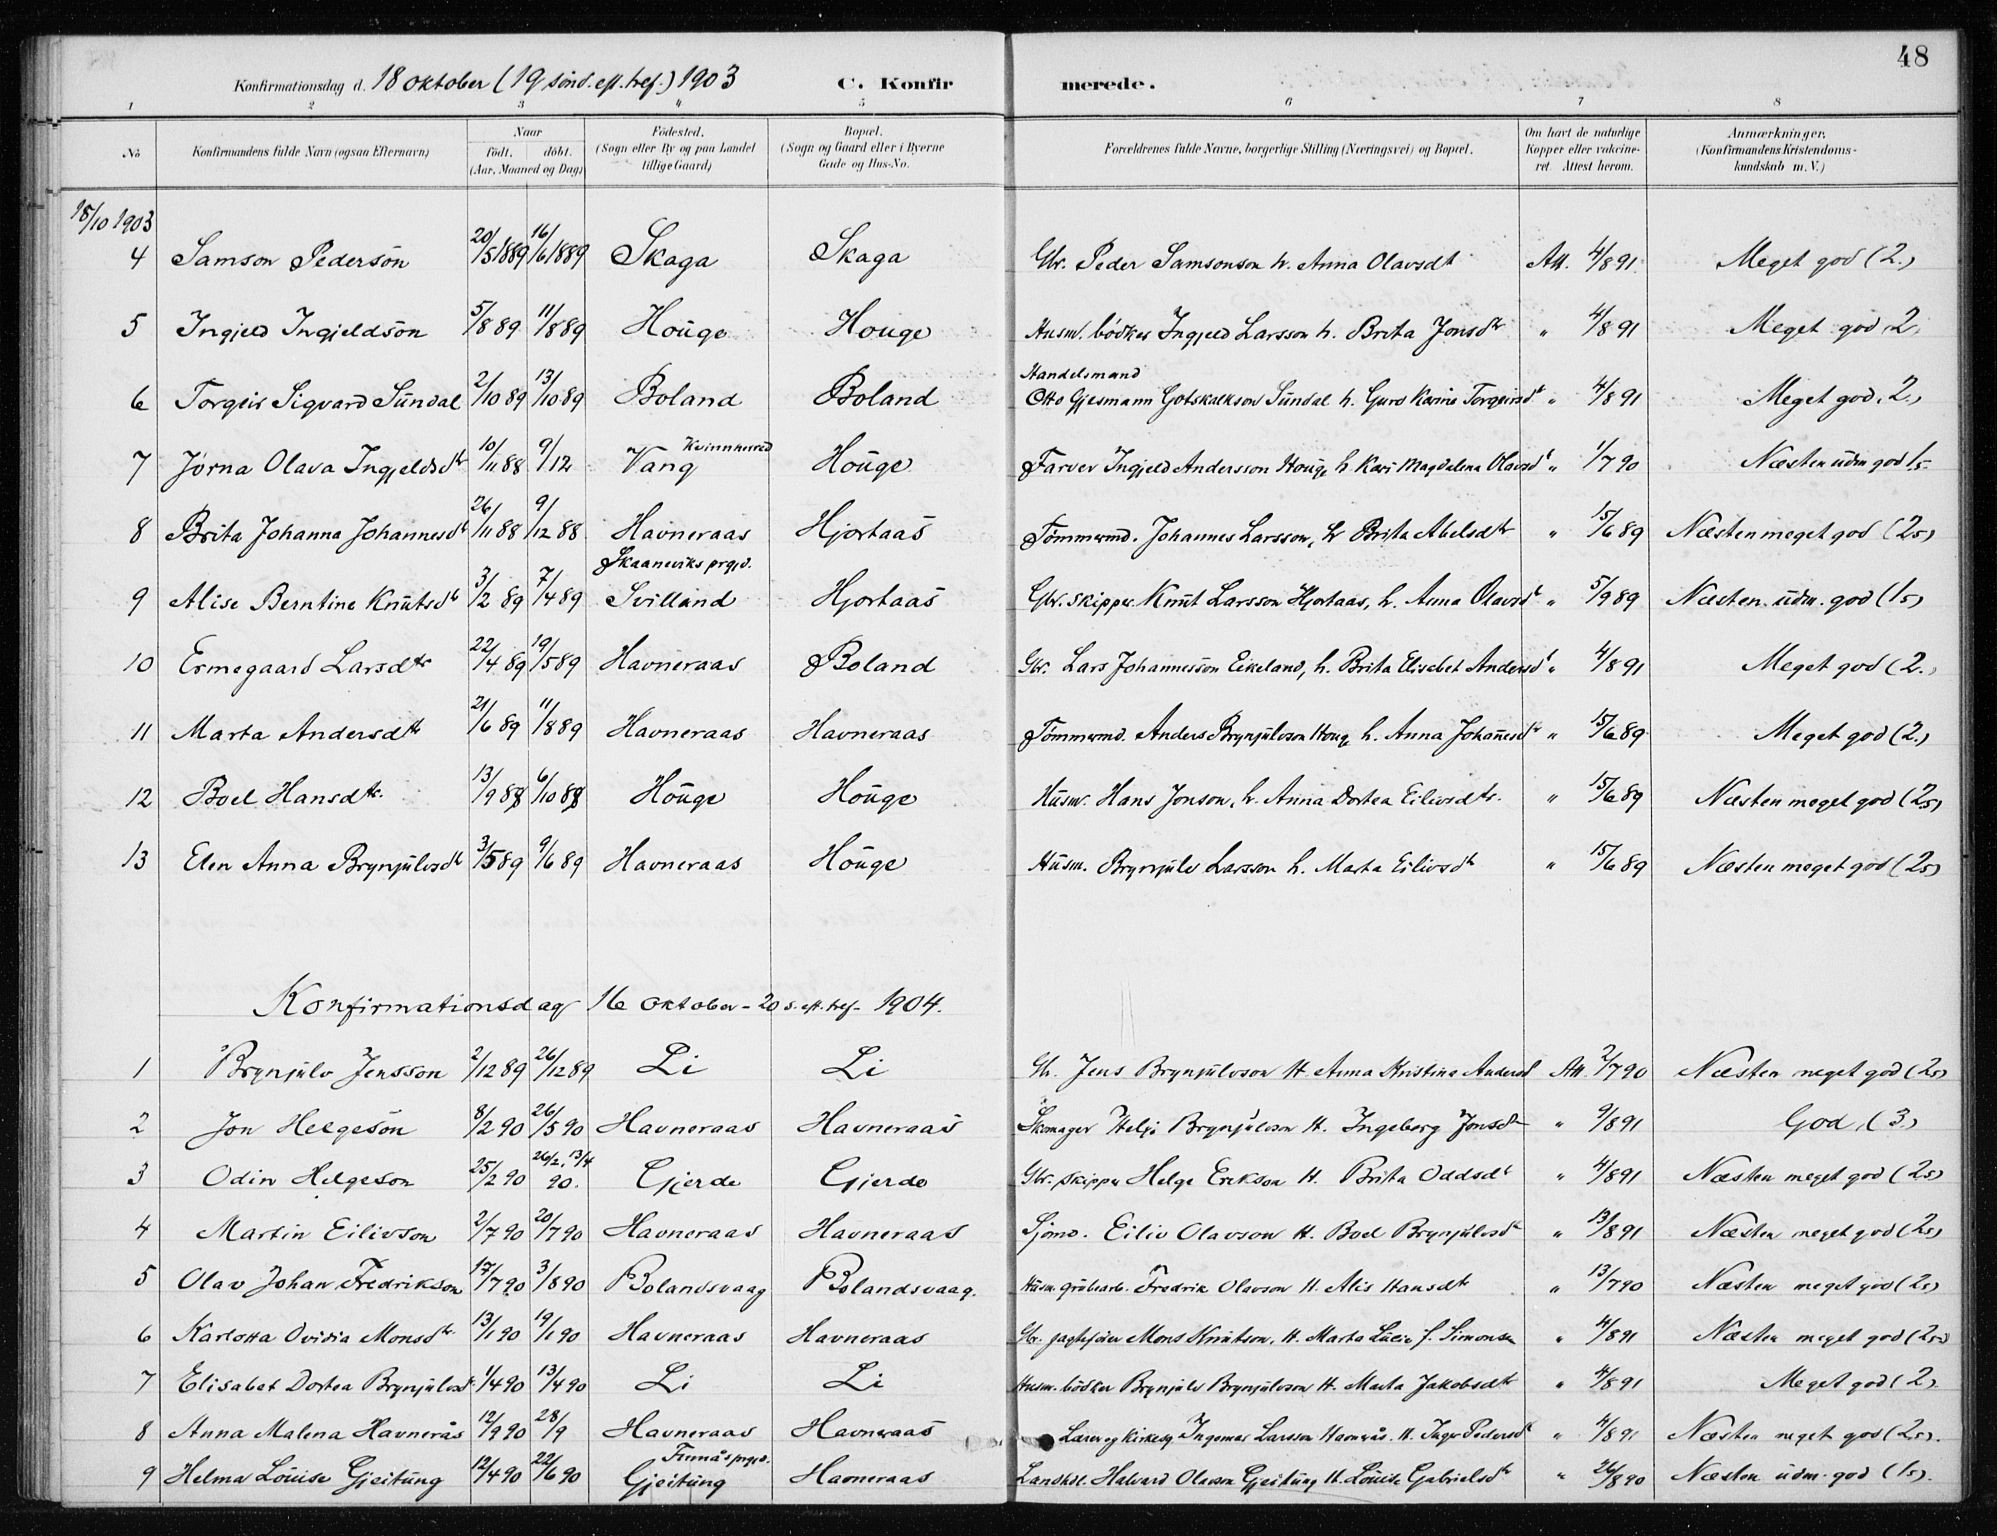 48
Konfirmationsdag d. 18 oktober (19 sönd. eft. tref.) 1903 C. Konfirmerede.
1 2 3 4 5 6 7 8
No Konfirmandens fulde Navn (ogsaa Efternavn) Naar födt. döbt. (Aar, Maaned og Dag) Födested. (Sogn eller By og paa Landet tillige Gaard) Bopæl. (Sogn og Gaard eller i Byerne Gade og Hus-No. Forældrenes fulde Navne, borgerlige Stilling (Næringsvei) og Bopæl. Om havt de naturlige Kopper eller vakcineret. Attest herom. Anmærkninger. (Konfirmandens Kristendomskundskab m. V.)
18/10 1903
4 Samson Pederson 20/5 1889 16/6 1889 Skaga Skaga Gbr. Peder Samsonson h. Anna Olavsdt Att. 4/8 91 Meget god (2.)
5 Ingjeld Ingjeldson 5/8 89 11/8 89 Houge Houge Husm. bödker Ingjeld Larsson h. Brita Jonsdtr " 4/8 91 Meget god 2.
6 Torgeir Sigvard Sundal 2/10 89 13/10 89 Boland Boland Handelsmand Otto Gjesmann Gotskalkson Sundal h. Guro Karine Torgeirsdt " 4/8 91 Meget god. 2.)
7 Jorna Olava Ingjeldsdtr 10/11 88 9/12 Kvinnherred Vang Houge Farver Ingjeld Andersson Houge h. Kari Magdalena Olavsdt " 1/7 90 Næsten udm god 1,5
8 Brita Johanna Johannesdt 26/11 88 9/12 88 Havneraas Hjortaas Tömmermd. Johannes Larsson, h Brita Abelsdtr " 15/6 89 Næsten meget god (2,5)
9 Alise Berntine Knutsdtr 3/2 89 7/4 89 Skaaneviks prgjd. Svilland Hjortaas Gbr. skipper Knut Larsson Hjortaas, h. Anna Olavsdt " 5/9 89 Næsten udm. god (1,5)
10 Ermegaard Larsdtr 22/4 89 19/5 89 Havneraas Boland Gbr. Lars Johannesson Eikeland, h. Brita Elisebet Andersdt " 4/8 91 Meget god (2.)
11 Marta Andersdtr 21/6 89 11/8 89 Havneraas Havneraas Tömmermd. Anders Brynjulvson Houge h. Anna Johannesdtr " 15/6 89 Meget god (2.)
12 Boel Hansdtr. 13/9 88 6/10 88 Houge Houge Husm. Hans Jonson, h. Anna Dortea Eilivsdtr. " 15/6 89 Næsten meget god (2,5)
13 Elen Anna Brynjulvsdtr 3/5 89 9/6 89 Havneraas Houge Husm. Brynjulv Larsson h. Marta Eilivsdtr " 15/6 89 Næsten meget god (2,5)
Konfirmationsdag 16 oktober - 20 s. eft. tref - 1904.
1 Brynjulv Jensson 2/12 89 26/12 89 Li Li Gb. Jens Brynjulvson H. Anna Kristina Andersd Att. 2/7 90 Næsten meget god (2,5)
2 Jon Helgeson 8/2 90 26/5 90 Havneraas Havneraas Skomager Helje Brynjulvson H. Ingeborg Jonsdtr " 9/8 91 God, (3.)
3 Odin Helgeson 25/2 90 26/2, 13/4 90. Gjerde Gjerde Gbr. skipper Helge Erekson H. Brita Oddsdt " 4/8 91 Næsten meget god (2,5)
4 Martin Eilivson 2/7 90 20/7 90 Havneraas Havneraas Sjömd. Eiliv Olavson H. Boel Brynjulvsdtr " 13/8 91 Næsten meget god (2,5)
5 Olav Johan Fredrikson 17/7 90 3/8 90 Bolandsvaag Bolandsvaag. Husm. grubearb. Fredrik Olavson H. Alis Hansdtr " 13/7 90 Næsten meget god (2,5)
6 Karlotta Ovidia Monsdtr 13/1 90 19/1 90 Havneraas Havneraas Gbr. jagtejer Mons Knutson, H. Marta Lucie f. Simonsen " 4/8 91 Næsten meget god (2,5)
7 Elisabet Dortea Brynjulvsdtr 1/4 90 13/4 90 Li Li Husm. bödker Brynjulv Brynjulvson H. Marta Jakobsdtr " 4/8 91 Meget god (2.
8 Anna Malena Havnerås 12/9 90 28/9 Havneraas Havneraas Lærer og kirkesg Ingemar Larsson Havnrås. H. Inger Pedersdt " 4/8 91 Næsten meget god (2,5).
9 Helma Louise Gjeitung 12/4 90 22/6 90 Finnås prgjd. Gjeitung Havneraas Landhdl. Halvard Olavson Gjeitung H. Louise Gabrielsdtr " 26/8 90 Næsten udm. god (1,5).